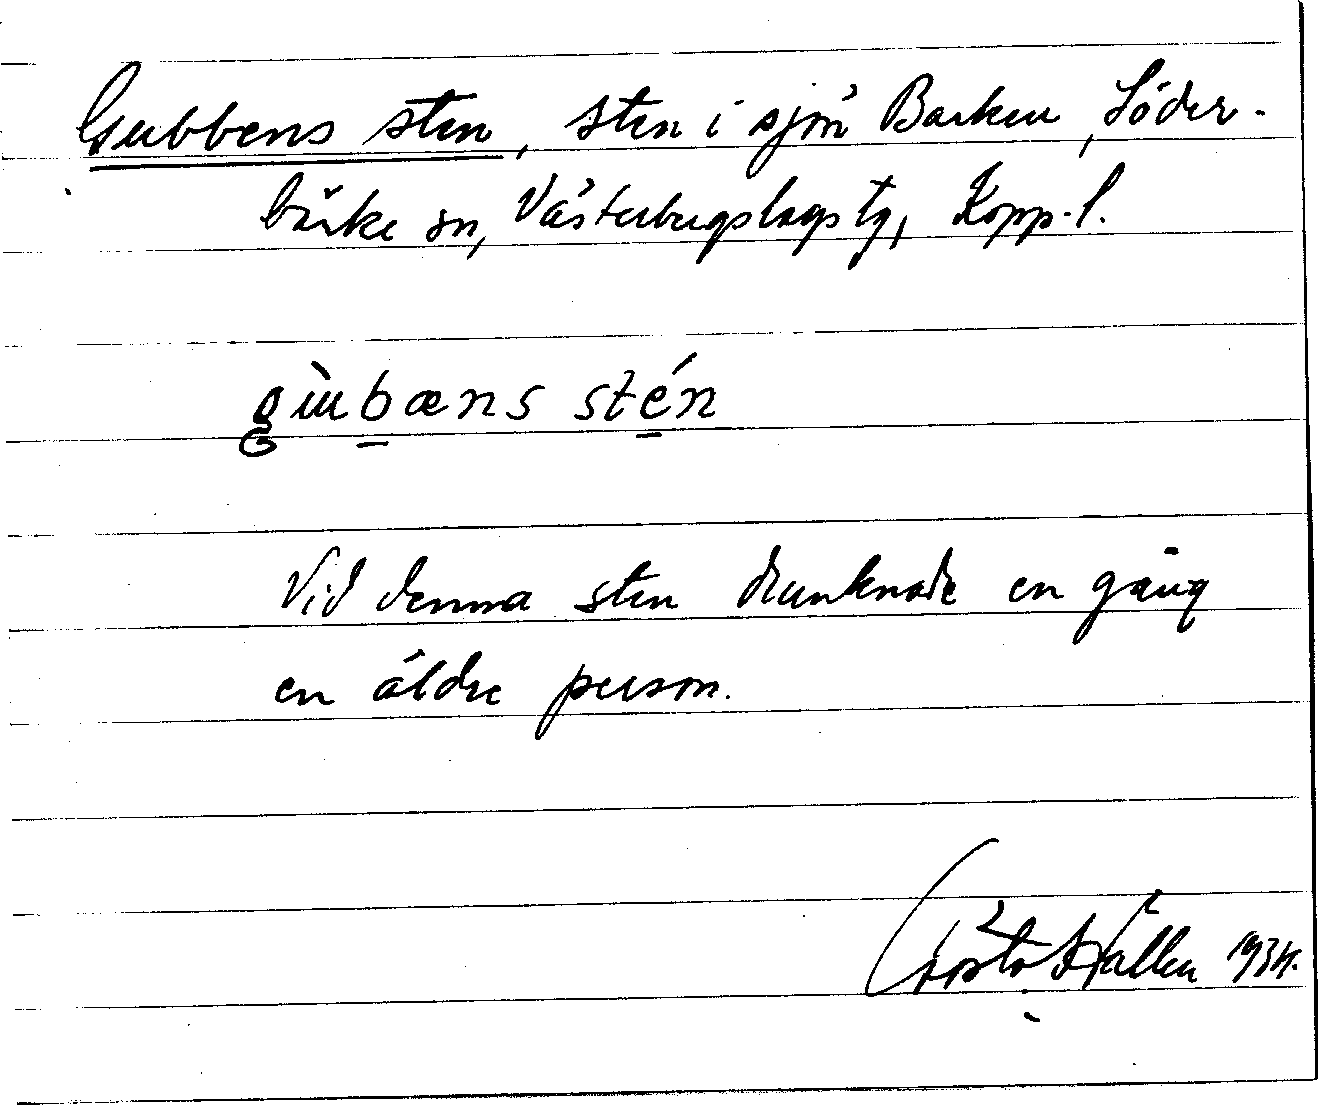 Gubbens sten, sten i sjön Barken, Söder-
bärke sn, Västerbergslags tg, Kopp. l.
gùbæns stén
Vid denna sten drunknade en gång
en äldre person.
Gösta Hållen 1934.